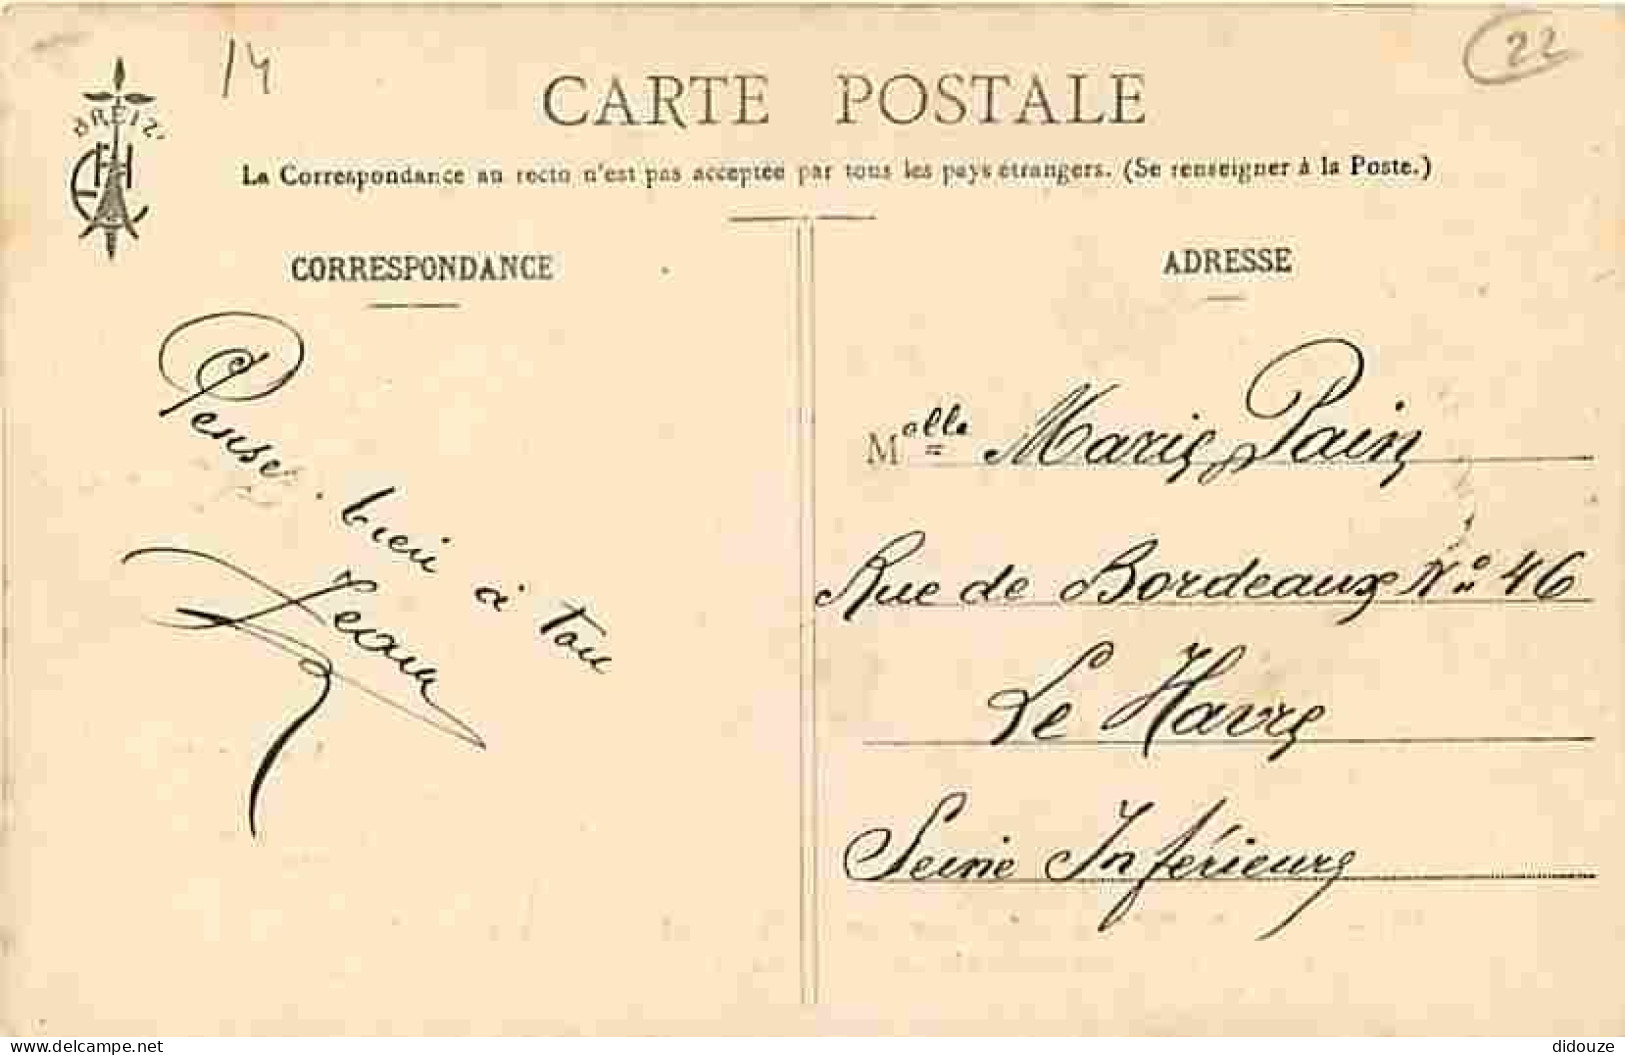 14
22
CARTE POSTALE
BREIZ
La Correspondance au recto n'est pas acceptée par tous les pays étrangers. (Se renseigner à la Poste.)
CORRESPONDANCE
Pense bien à toi
Jean
ADRESSE
Melle Marie Pain
Rue de Bordeaux No 46
Le Havre
Seine Inférieure
www.delcampe.net
didouze